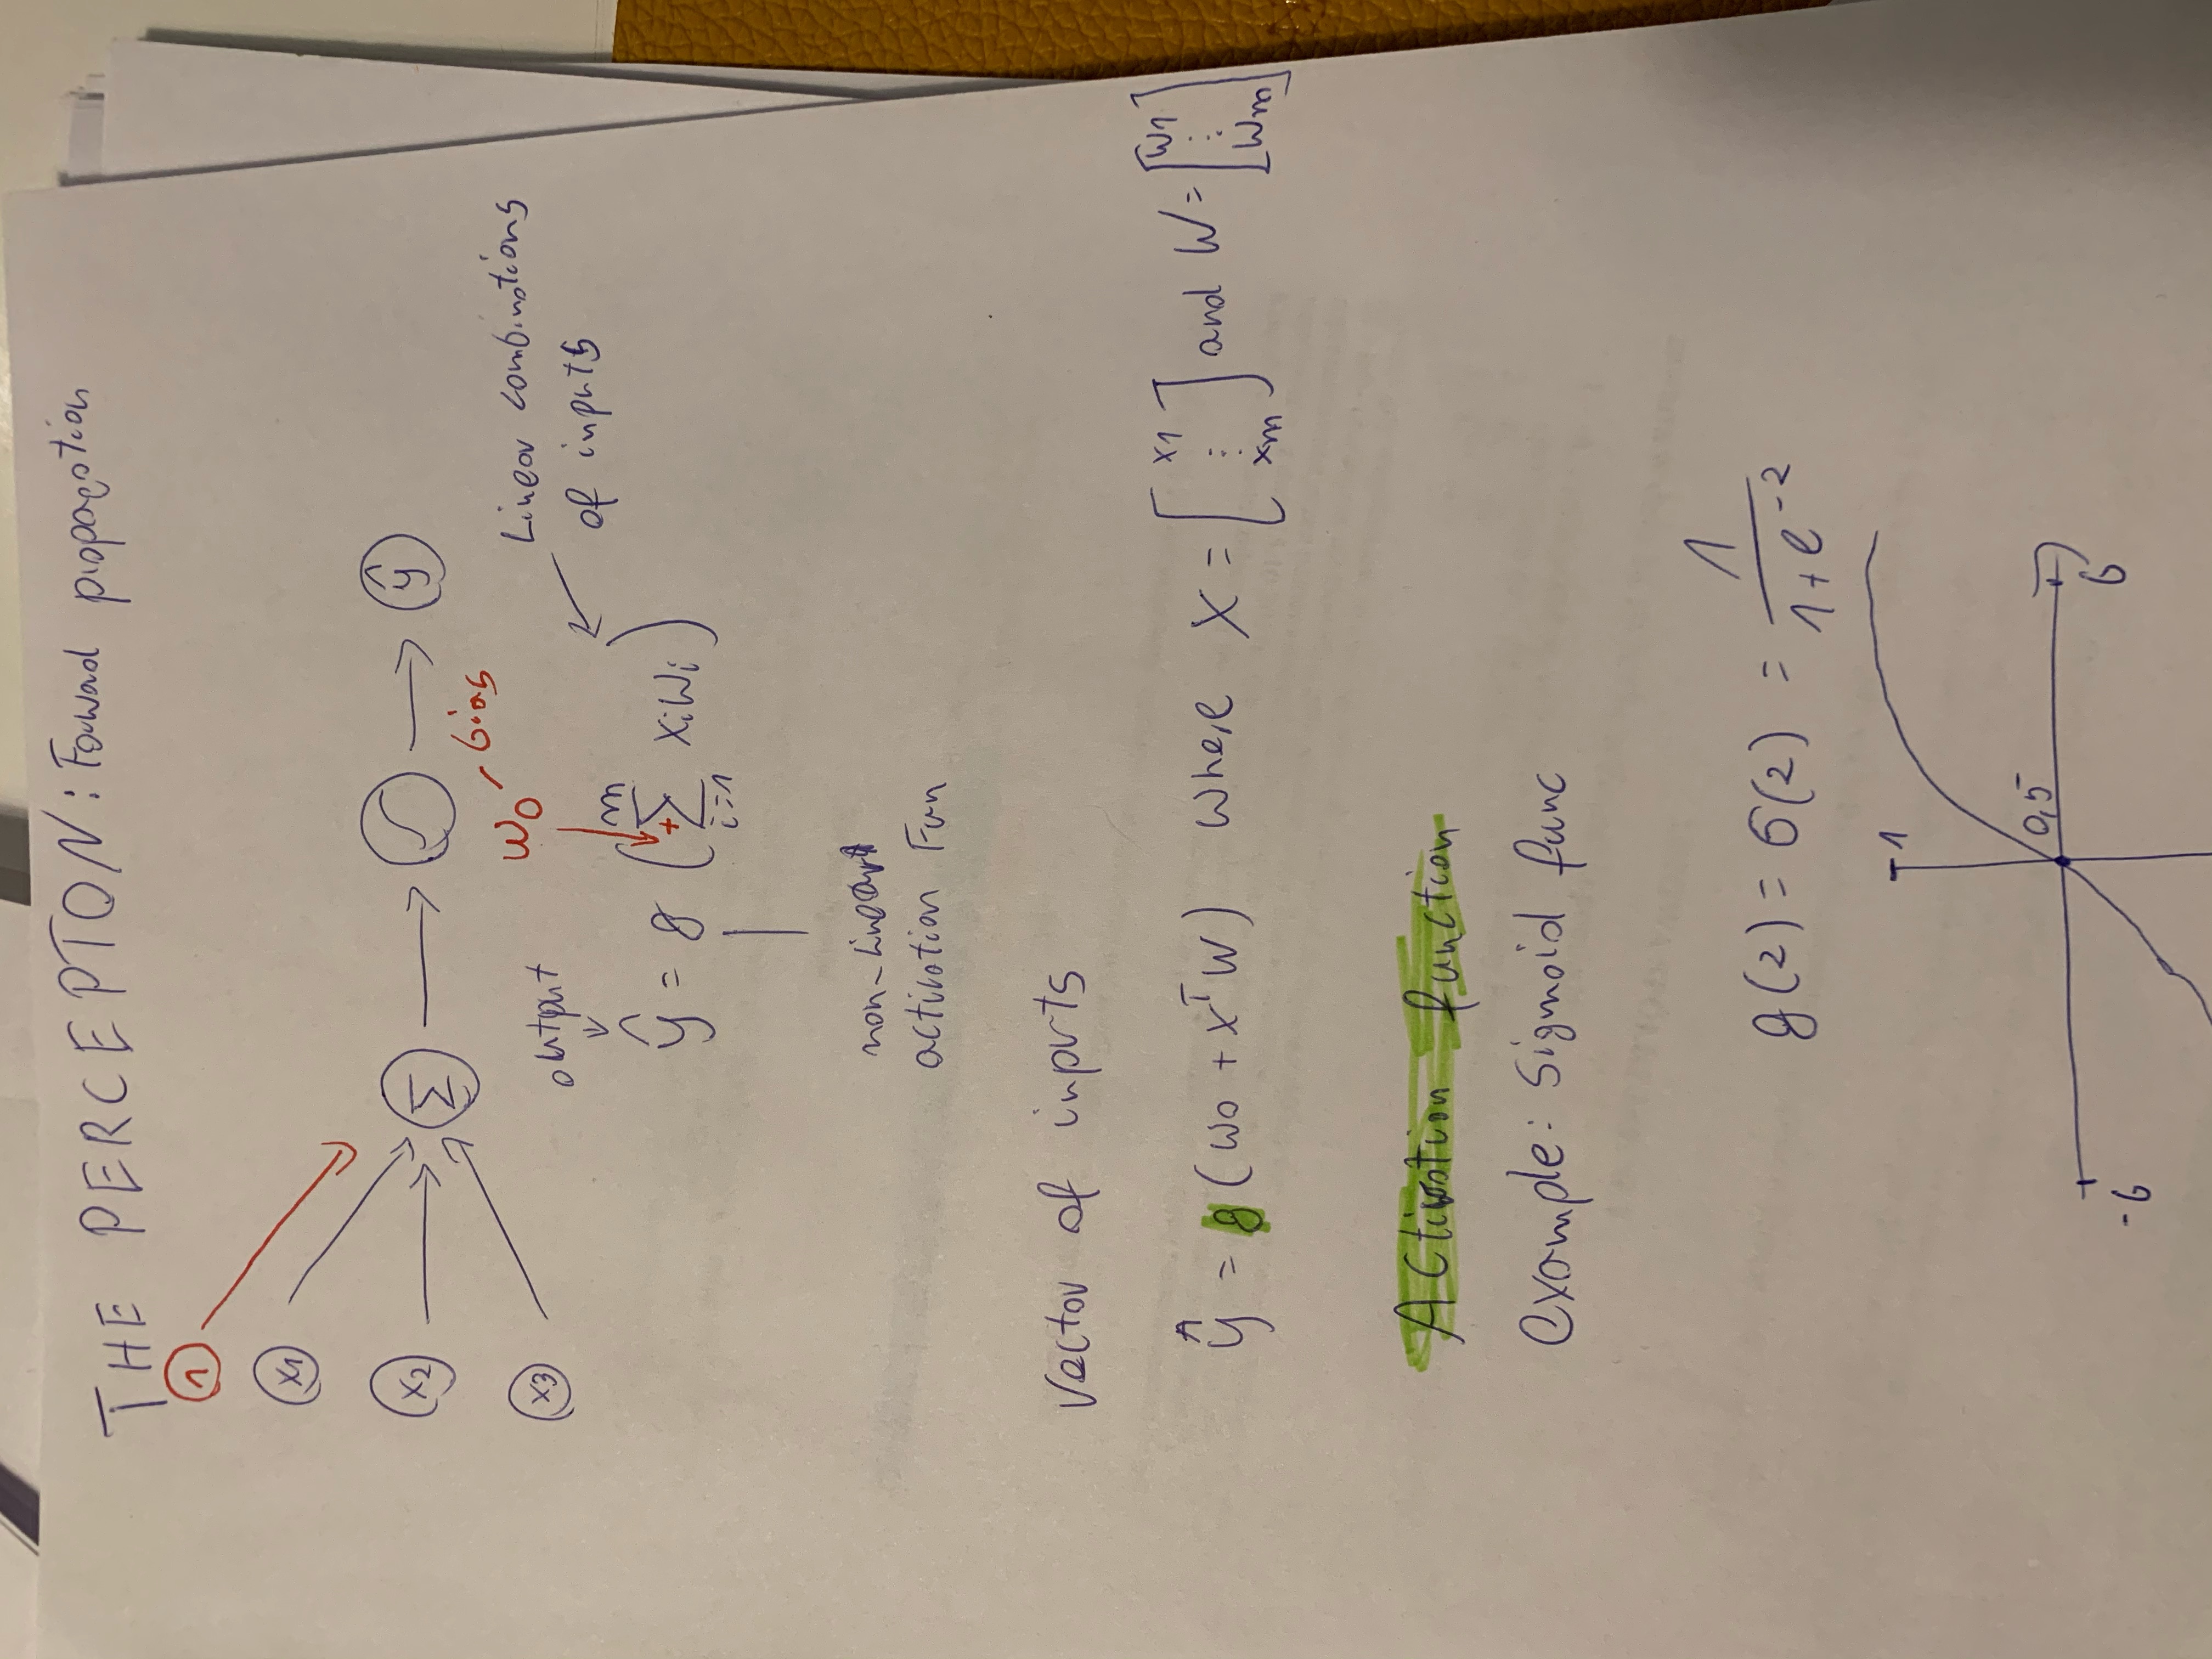 THE PERCEPTON: Forward propagation
1
x1
x2
Σ
ŷ
x3
w0 - bias
output
Linear combinations
of inputs
ŷ = g ( + Σ xiwi )
m
i=1
non-linear
activation Fun
Vector of inputs
ŷ = g ( w0 + x^T W ) where X = [ x1 ⋮ xm ] and W = [ w1 ⋮ wm ]
Activation function
example: Sigmoid func
g(z) = σ(z) = 1 / (1 + e^-z)
1
0,5
-6
6